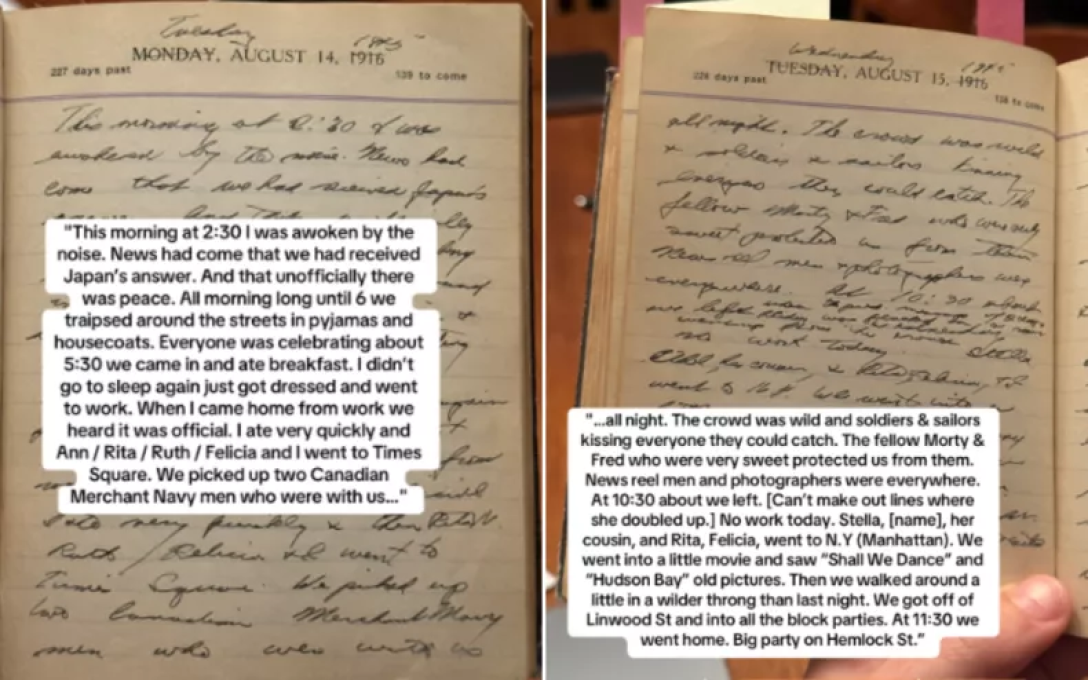 Tuesday 1945
MONDAY, AUGUST 14, 1916
227 days past
139 to come
This morning at 2:30 I was
awakened by the noise. News had
come that we had received Japan's
"This morning at 2:30 I was awoken by the
noise. News had come that we had received
Japan's answer. And that unofficially there
was peace. All morning long until 6 we
traipsed around the streets in pyjamas and
housecoats. Everyone was celebrating about
5:30 we came in and ate breakfast. I didn't
go to sleep again just got dressed and went
to work. When I came home from work we
heard it was official. I ate very quickly and
Ann / Rita / Ruth / Felicia and I went to Times
Square. We picked up two Canadian
Merchant Navy men who were with us..."
I ate very quickly & then Rita
Ruth / Felicia & I went to
Times Square. We picked up
two Canadian Merchant Navy
men who were with us
Wednesday 1945
TUESDAY, AUGUST 15, 1916
228 days past
138 to come
all night. The crowd was wild
& soldiers & sailors kissing
everyone they could catch. The
fellow Morty & Fred who were very
sweet protected us from them
News reel men & photographers were
everywhere. At 10:30 about
we left
no work today. Stella
her cousin, & Rita, Felicia,
went to N.Y. We went into
"...all night. The crowd was wild and soldiers & sailors
kissing everyone they could catch. The fellow Morty &
Fred who were very sweet protected us from them.
News reel men and photographers were everywhere.
At 10:30 about we left. [Can't make out lines where
she doubled up.] No work today. Stella, [name], her
cousin, and Rita, Felicia, went to N.Y (Manhattan). We
went into a little movie and saw "Shall We Dance" and
"Hudson Bay" old pictures. Then we walked around a
little in a wilder throng than last night. We got off of
Linwood St and into all the block parties. At 11:30 we
went home. Big party on Hemlock St."